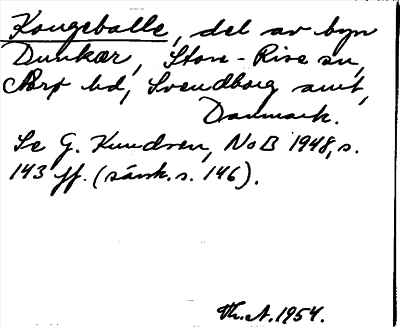 Kongeballe, del av byn
Dunkær, Store-Rise sn,
Ærø hd, Svendborg amt,
Danmark.
Se G. Knudsen, NoB 1948, s.
143 ff. (särsk. s. 146).
Th.A. 1954.